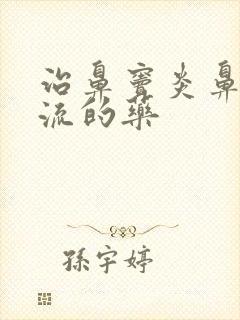 治鼻窦炎鼻
流的药
孫宇婷